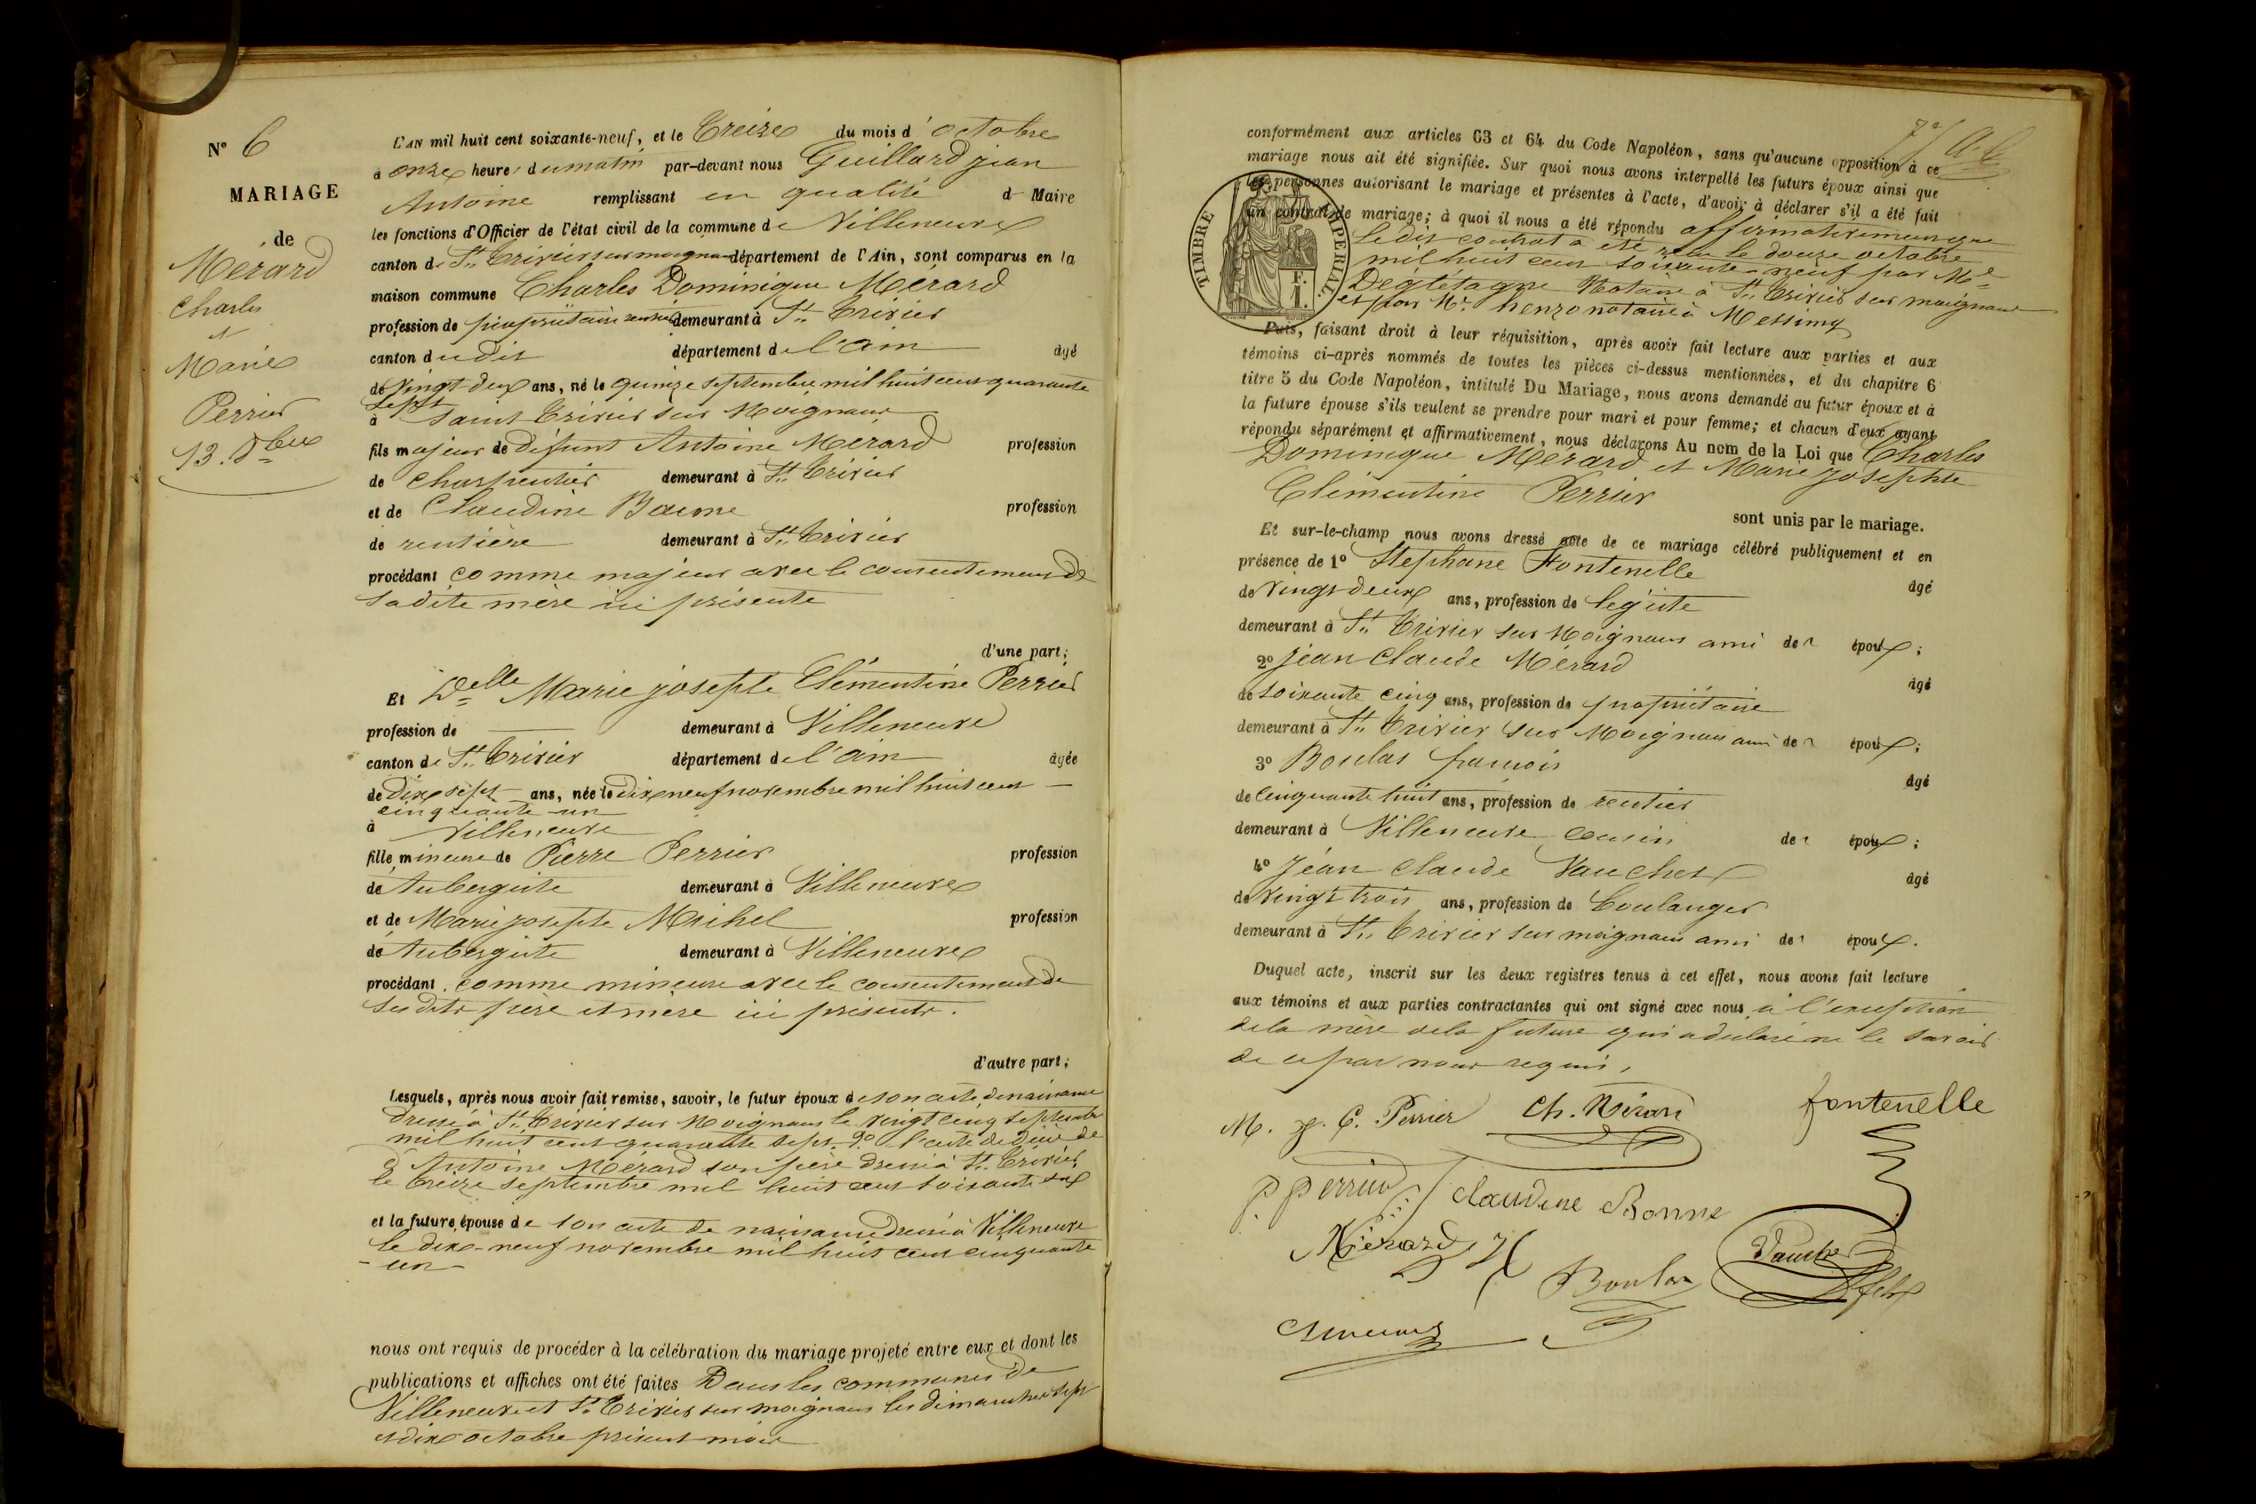 N° 6
MARIAGE
de
Mérard
Charles
et
Marie
Perrier
13. 8bre
L'AN mil huit cent soixante-neuf, et le Treize du mois d'octobre
à onze heures du matin par-devant nous Guillard jean
Antoine remplissant en qualité de Maire
les fonctions d'Officier de l'état civil de la commune de Villeneuve
canton de St Trivier sur moignans département de l'Ain, sont comparus en la
maison commune Charles Dominique Mérard
profession de propriétaire rentier demeurant à St Trivier
canton dudit département de l'ain âgé
de Vingt deux ans, né le quinze septembre mil huit cent quarante
sept
à Saint Trivier sur Moignans
fils majeur de défunt Antoine Mérard profession
de Charpentier demeurant à St Trivier
et de Claudine Baune profession
de rentière demeurant à St Trivier
procédant comme majeur avec le consentement de
sadite mère ici présente
d'une part;
Et Delle Marie josephte Clémentine Perrier
profession de demeurant à Villeneuve
canton de St Trivier département de l'ain âgée
de Dix sept ans, née le dix neuf novembre mil huit cent
cinquante un
à Villeneuve
fille mineure de Pierre Perrier profession
de Aubergiste demeurant à Villeneuve
et de Marie josephte Michel profession
de Aubergiste demeurant à Villeneuve
procédant comme mineure avec le consentement de
ses dits père et mère ici présents.
d'autre part;
Lesquels, après nous avoir fait remise, savoir, le futur époux de son acte de naissance
dressé à St Trivier sur Moignans le vingt cinq septembre
mil huit cent quarante sept 2° l'acte de décès de
d'Antoine Mérard son père dressé à St Trivier
le treize septembre mil huit cent soixante six
et la future épouse de son acte de naissance dressé à Villeneuve
le dix-neuf novembre mil huit cent cinquante
-un-
nous ont requis de procéder à la célébration du mariage projeté entre eux et dont les
publications et affiches ont été faites Dans les communes de
Villeneuve et St Trivier sur moignans les dimanches sept
et dix octobre présent mois
conformément aux articles 63 et 64 du Code Napoléon, sans qu'aucune opposition à ce
mariage nous ait été signifiée. Sur quoi nous avons interpellé les futurs époux ainsi que
les personnes autorisant le mariage et présentes à l'acte, d'avoir à déclarer s'il a été fait
un contrat de mariage; à quoi il nous a été répondu affirmativement que
ledit contrat a été reçu le douze octobre
mil huit cent soixante-neuf par Me
Deglétagne Notaire à St Trivier sur moignans
et par Me henzo notaire à Messimy
TIMBRE IMPERIAL.
F.
1.
Puis, faisant droit à leur réquisition, après avoir fait lecture aux parties et aux
témoins ci-après nommés de toutes les pièces ci-dessus mentionnées, et du chapitre 6
titre 5 du Code Napoléon, intitulé Du Mariage, nous avons demandé au futur époux et à
la future épouse s'ils veulent se prendre pour mari et pour femme; et chacun d'eux ayant
répondu séparément et affirmativement, nous déclarons Au nom de la Loi que Charles
Dominique Mérard et Marie josephte
Clémentine Perrier
sont unis par le mariage.
Et sur-le-champ nous avons dressé acte de ce mariage célébré publiquement et en
présence de 1° Stephane Fontenelle âgé
de Vingt deux ans, profession de legiste
demeurant à St Trivier sur Moignans ami de l'époux;
2° Jean Claude Mérard âgé
de soixante cinq ans, profession de propriétaire
demeurant à St Trivier sur Moignans ami de l'époux;
3° Boulas francois âgé
de Cinquante huit ans, profession de rentier
demeurant à Villeneuve cousin de l'époux;
4° Jean Claude Vaucher âgé
de Vingt trois ans, profession de Boulanger
demeurant à St Trivier sur moignans ami de l'époux.
Duquel acte, inscrit sur les deux registres tenus à cet effet, nous avons fait lecture
aux témoins et aux parties contractantes qui ont signé avec nous à l'exception
de la mère de la future qui a déclaré ne le savoir
de ce par nous requis,
M. J. C. Perrier Ch. Mérard fontenelle
P. Perrier Claudine Bonne
Mérard Boulas Vaucher